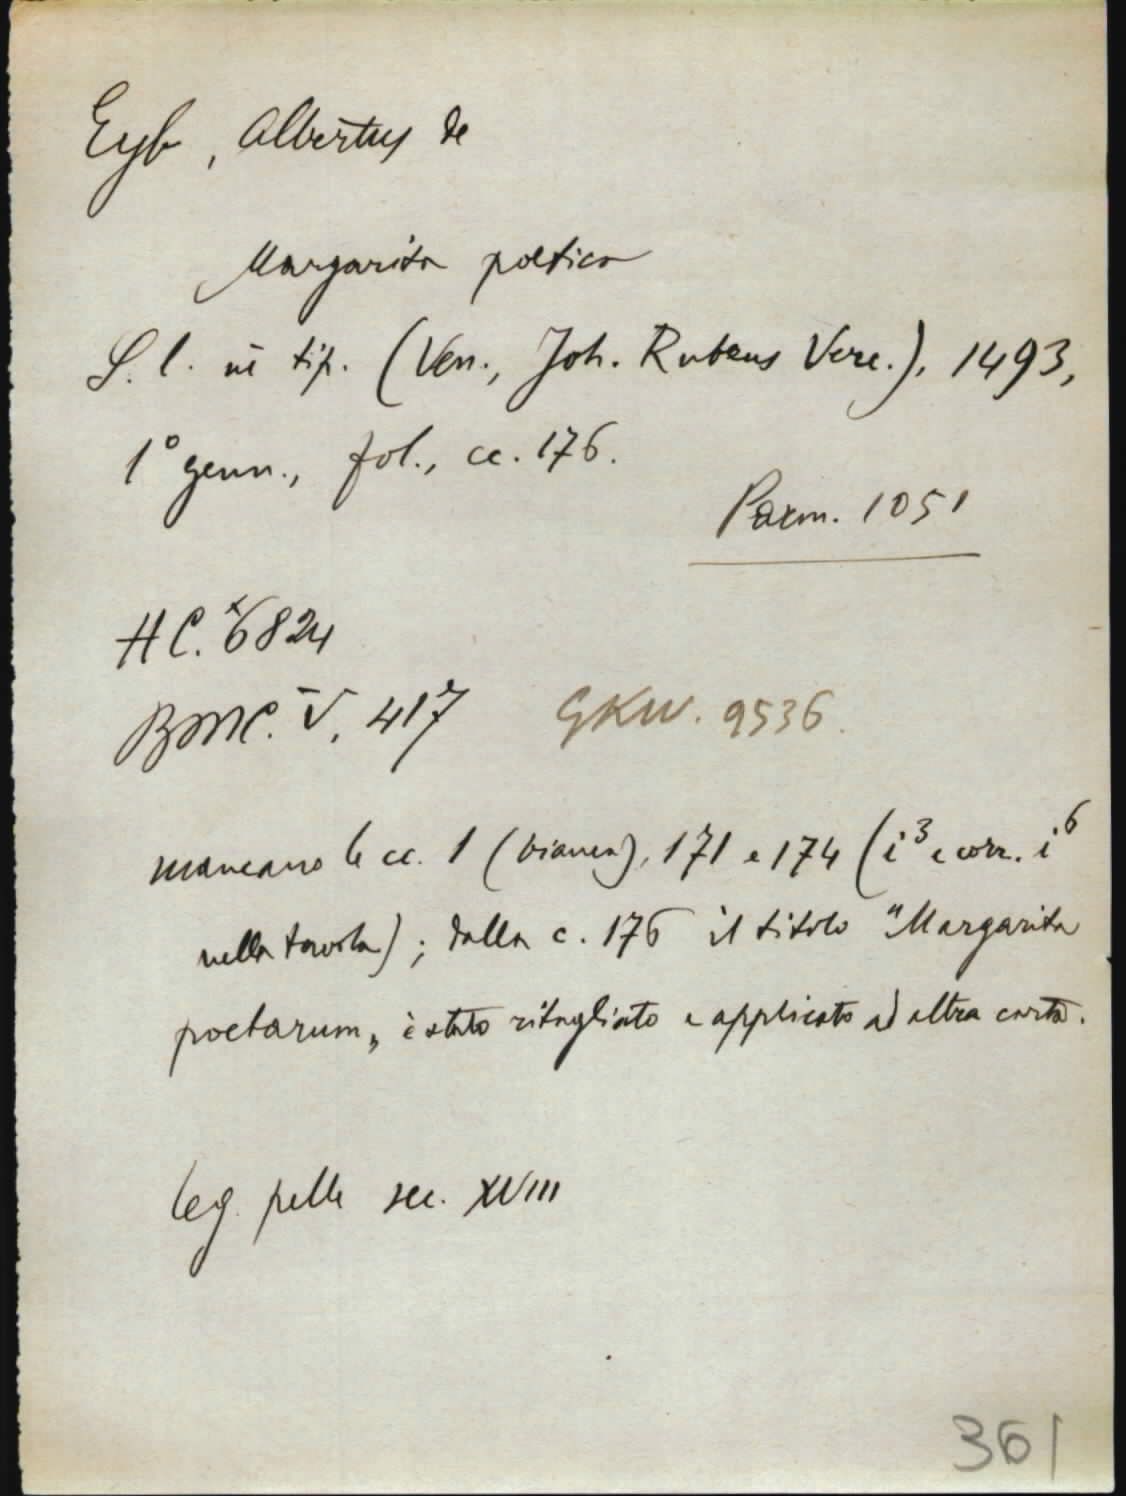 Eyb, Albertus de
Margarita poetica
S. l. né tip. (Ven., Joh. Rubeus Verc.), 1493,
1° genn., fol., cc. 176.
Parm. 1051
HC. *6824
BMC. V, 417 GKW. 9536.
mancano le cc. 1 (bianca), 171 e 174 (i³ e corr. i⁶
nella tavola); dalla c. 176 il titolo "Margarita
poetarum„ è stato ritagliato e applicato ad altra carta.
leg. pelle sec. XVIII
361